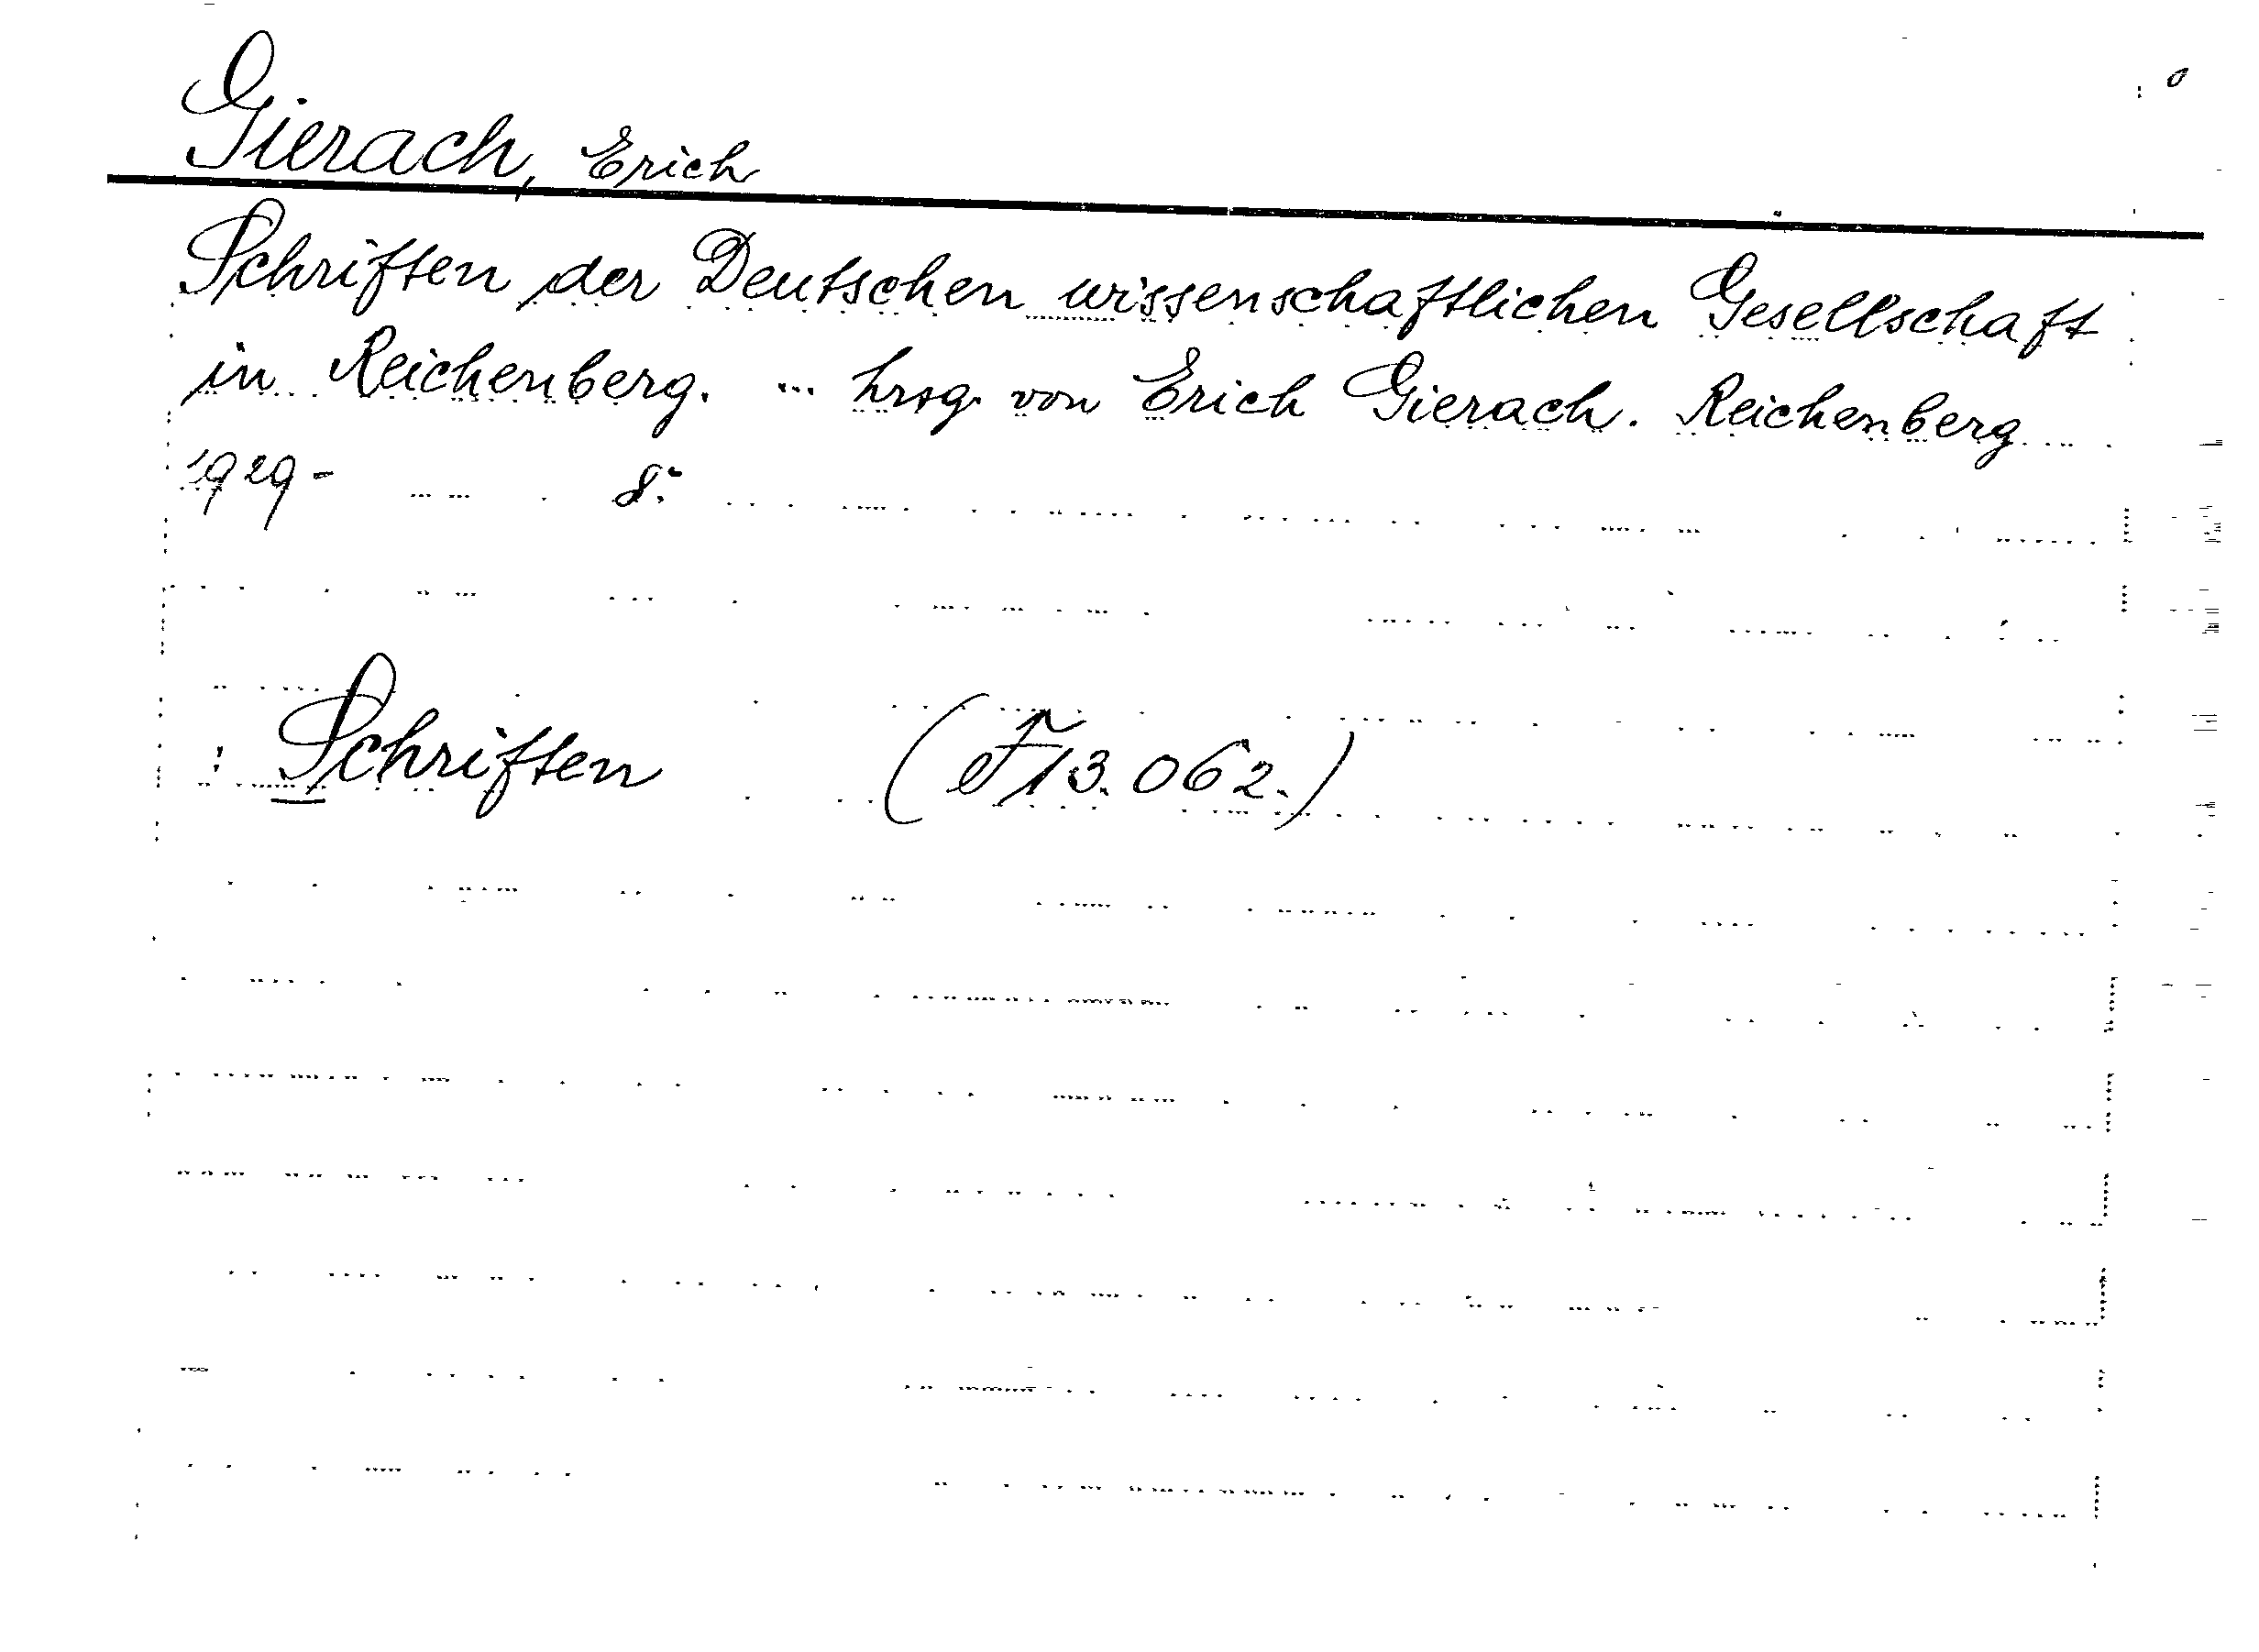 Gierach, Erich
Schriften der Deutschen wissenschaftlichen Gesellschaft
in Reichenberg. ... hrsg. von Erich Gierach. Reichenberg
1929- 8°.
: Schriften (F 13.062.)